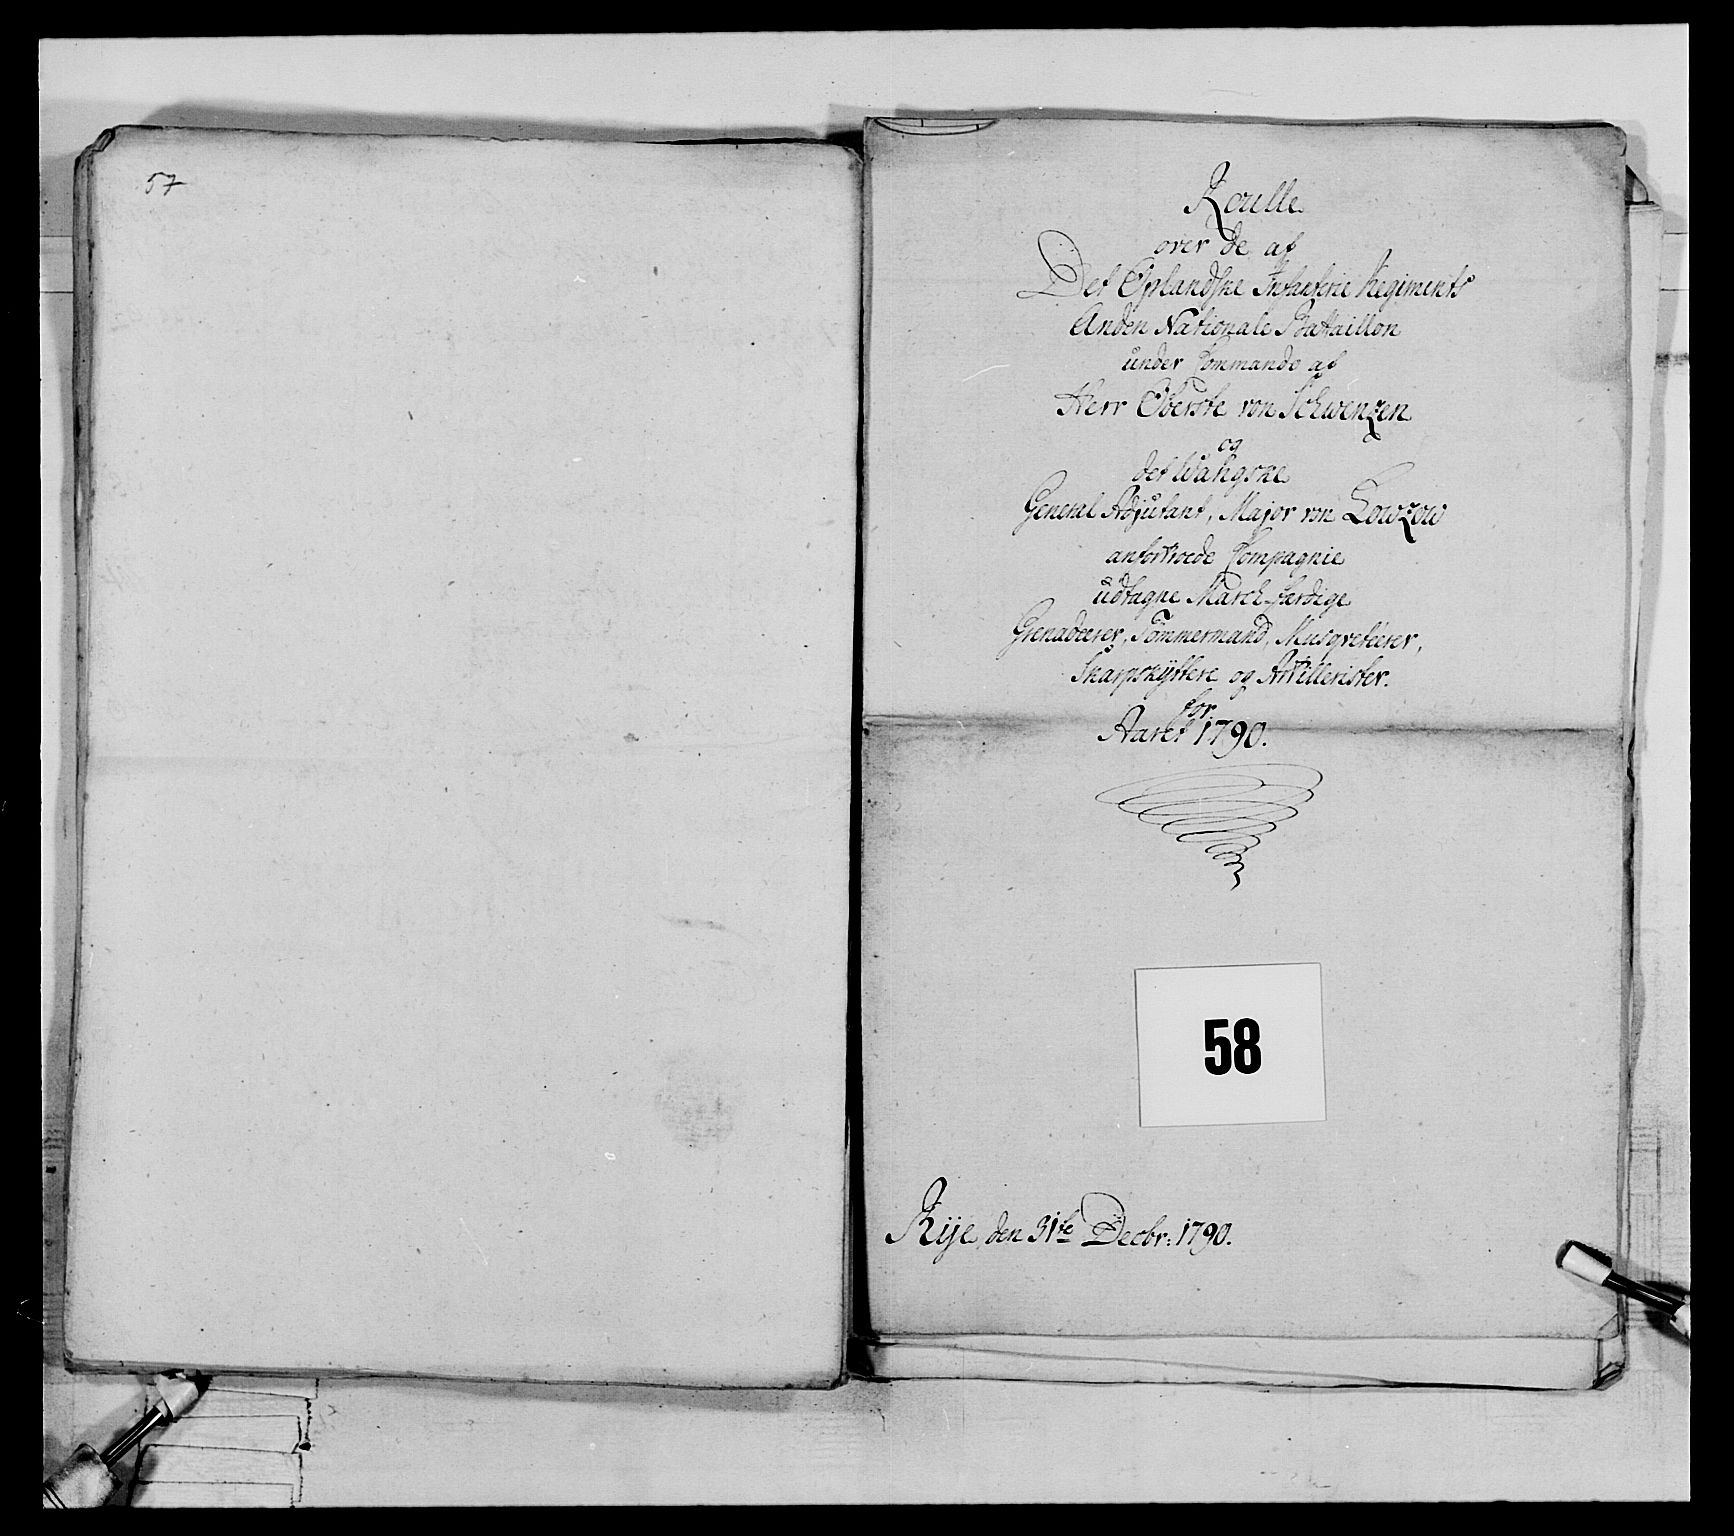 57
Roulle
over de af
Det Oplandske Infanterie Regiments
Anden Nationale Battaillon
under Commando af
Herr Oberste von Schwenzen
og
det Wangske
General Adjutant, Major von Lowzow
anfortroede Compagnie
udtagne March-færdige
Grenadeerer, Tømmermand, Musqveteerer,
Skarpskyttere og Artillerister.
for
Aaret 1790.
58
Rÿe, den 31te Decbr: 1790.